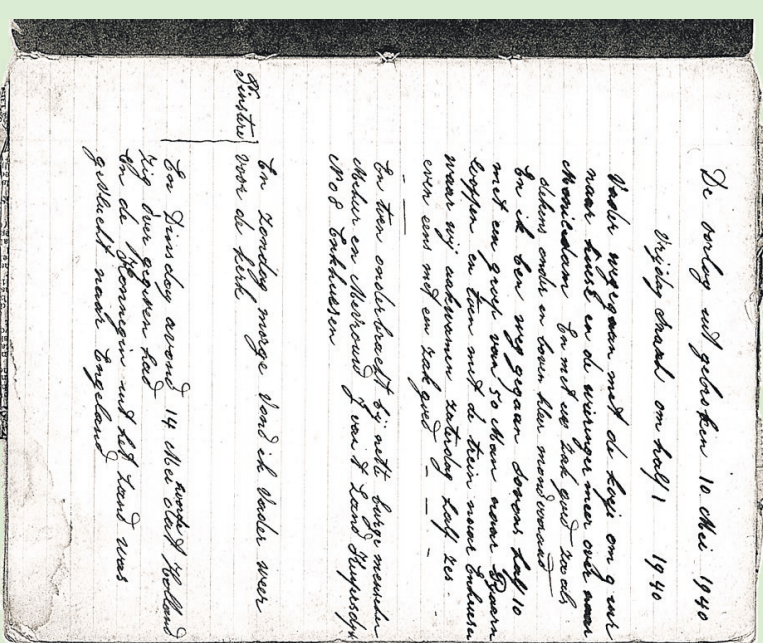 De oorlog uit gebroken 10 Mei 1940
Vrijdag om half 1 1940
Vader weggegaan met de om 9 uur
naar huis en de wieringer meer over naar
Monikedam En met zak goed zo als
onder en boven
En ik ben weg gegaan savons half 10
met en groep van 50 Man naar Baarn
loopen en toen met de trein naar Enhuse
waar wij aankwamen zaterdag half zes
even eens met en zak goed - - -
En toen onderbracht bij nette burge mensen
Meheer en Mevrouw J van t Land
No 8 Enkhuesen
Pinstere En zondag morge vond ik Vader weer
voor de kerk
En Dinsdag avond 14 Mei dat Holland
zig over gegeven had
En de Konnegin uit het Land was
gevlucht naar Engeland